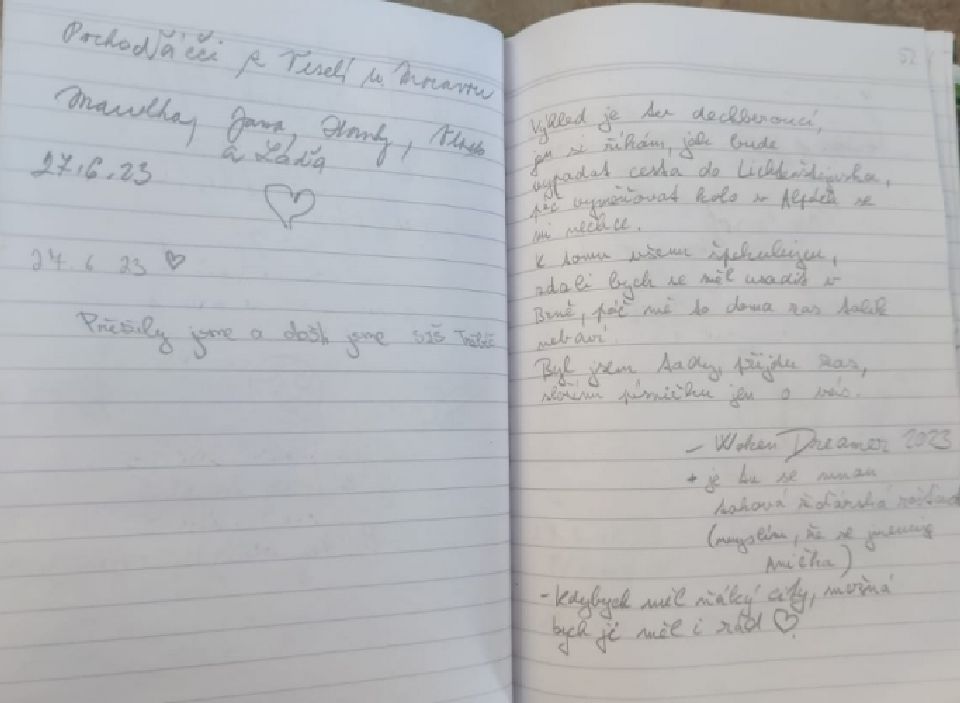 Pochoďáčci z Veselí n. Moravou
Maruška, Jana,
a Láďa
27.6.23
24.6 23
Přežily jsme a došli jsme SZŠ
52
Výhled je tu dechberoucí,
jen si říkám, jak bude
vypadat cesta do Lichtenštejnska,
páč vyměňovat kolo v Alpách se
mi nechce.
K tomu všemu špekuluju,
zdali bych se měl usadit v
Brně, páč mě to doma zas tolik
nebaví.
Byl jsem tady, přijdu zas,
složím písničku jen o vás.
- Woken Dreamer 2023
+ je tu se mnou
taková
(myslím, že se jmenuje
Anička)
- Kdybych měl ňáký city, možná
bych jí měl i rád